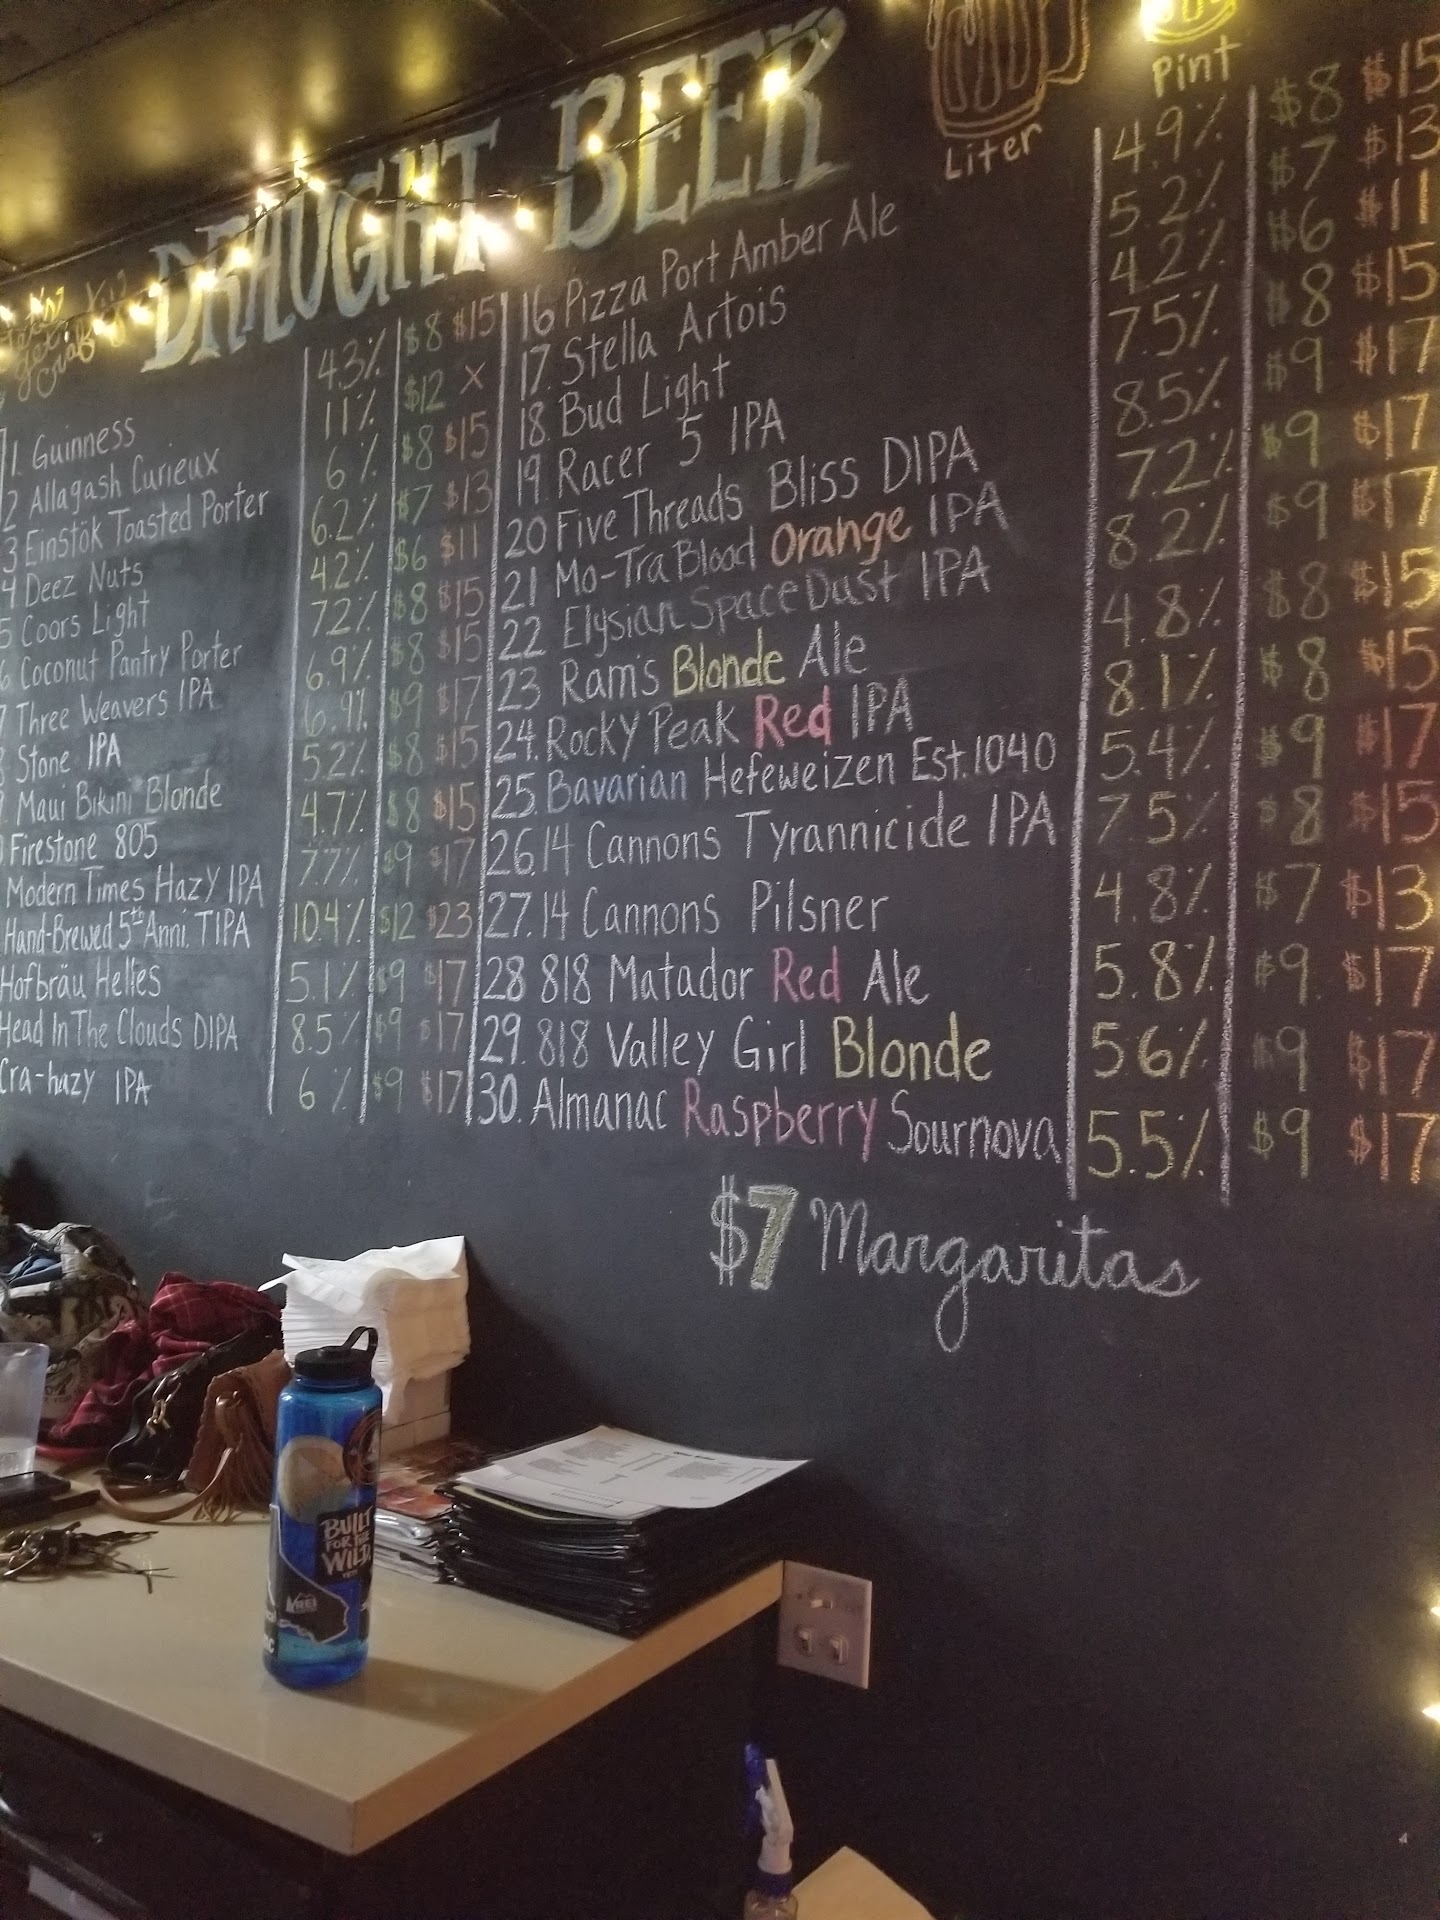 DRAUGHT BEER
Liter
Pint
1. Guinness 4.3% $8 $15
2 Allagash Curieux 11% $12 X
3 Einstök Toasted Porter 6% $8 $15
4 Deez Nuts 6.2% $7 $13
5 Coors Light 4.2% $6 $11
6 Coconut Pantry Porter 7.2% $8 $15
7 Three Weavers IPA 6.9% $8 $15
8 Stone IPA 6.9% $9 $17
9 Maui Bikini Blonde 5.2% $8 $15
Firestone 805 4.7% $8 $15
Modern Times Hazy IPA 7.7% $9 $17
Hand-Brewed 5th Anni. TIPA 10.4% $12 $23
Hofbräu Helles 5.1% $9 $17
Head In The Clouds DIPA 8.5% $9 $17
Cra-hazy IPA 6% $9 $17
16 Pizza Port Amber Ale 4.9% $8 $15
17. Stella Artois 5.2% $7 $13
18. Bud Light 4.2% $6 $11
19 Racer 5 IPA 7.5% $8 $15
20 Five Threads Bliss DIPA 8.5% $9 $17
21 Mo-Tra Blood Orange IPA 7.2% $9 $17
22 Elysian Space Dust IPA 8.2% $9 $17
23 Ram's Blonde Ale 4.8% $8 $15
24. Rocky Peak Red IPA 8.1% $8 $15
25. Bavarian Hefeweizen Est. 1040 5.4% $9 $17
26. 14 Cannons Tyrannicide IPA 7.5% $8 $15
27. 14 Cannons Pilsner 4.8% $7 $13
28 818 Matador Red Ale 5.8% $9 $17
29. 818 Valley Girl Blonde 5.6% $9 $17
30. Almanac Raspberry Sournova 5.5% $9 $17
$7 Margaritas
BUILT
FOR THE
WILD.
REI